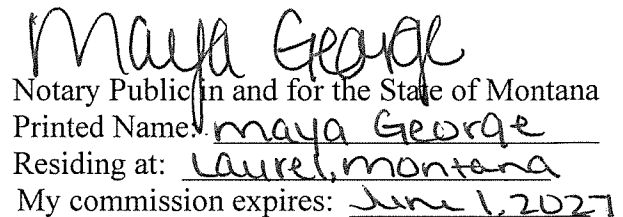 Maya George
Notary Public in and for the State of Montana
Printed Name: maya George
Residing at: Laurel, montana
My commission expires: June 1, 2027